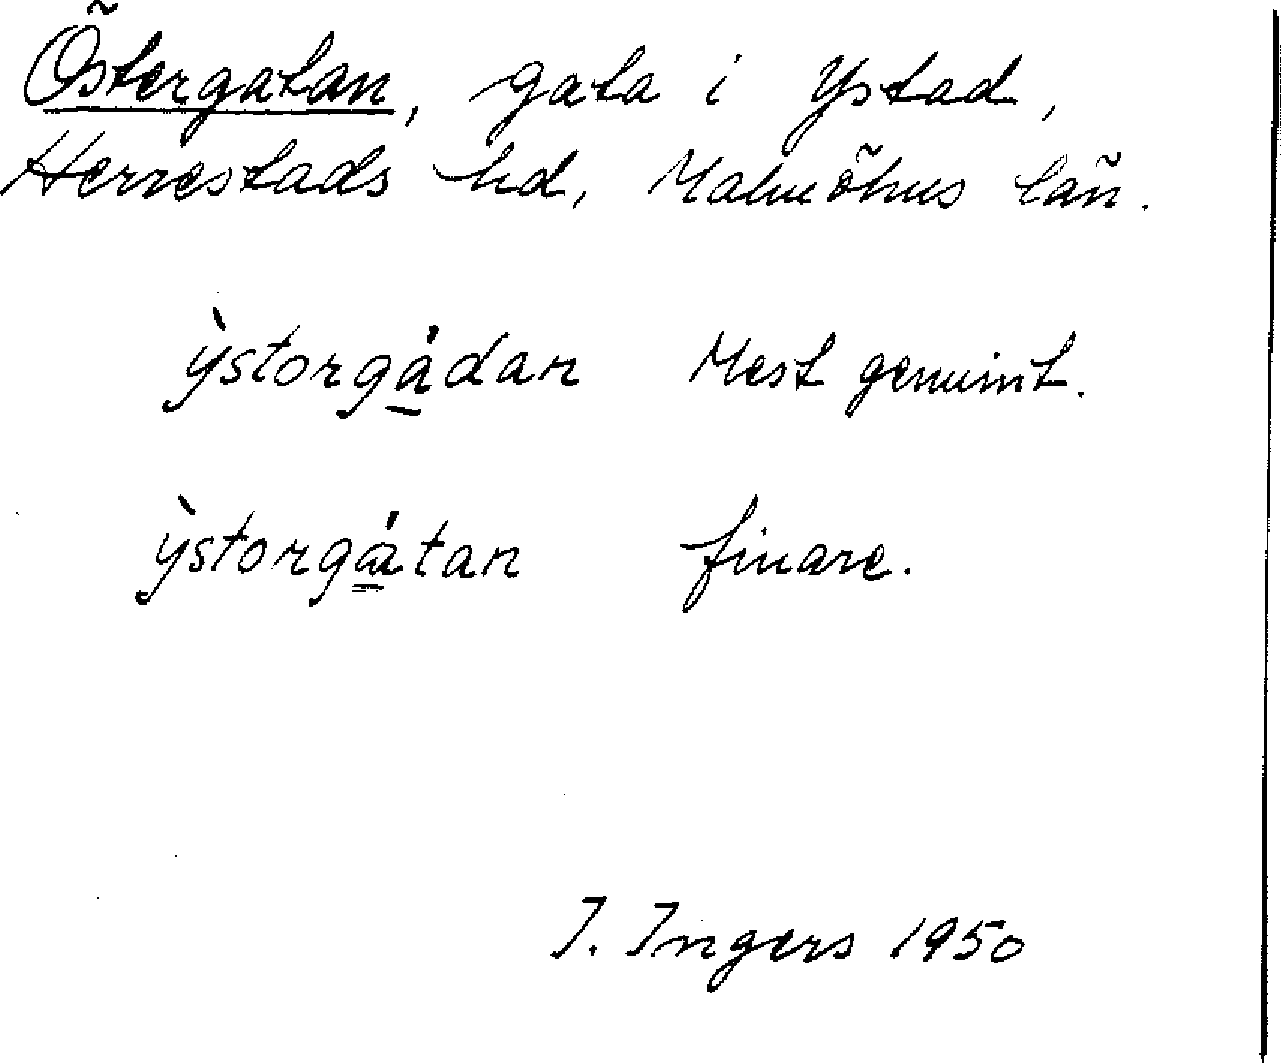 Östergatan, gata i Ystad,
Herrestads hd, Malmöhus län.
ỳstorgádan Mest genuint.
ỳstorgátan finare.
I. Ingers 1950